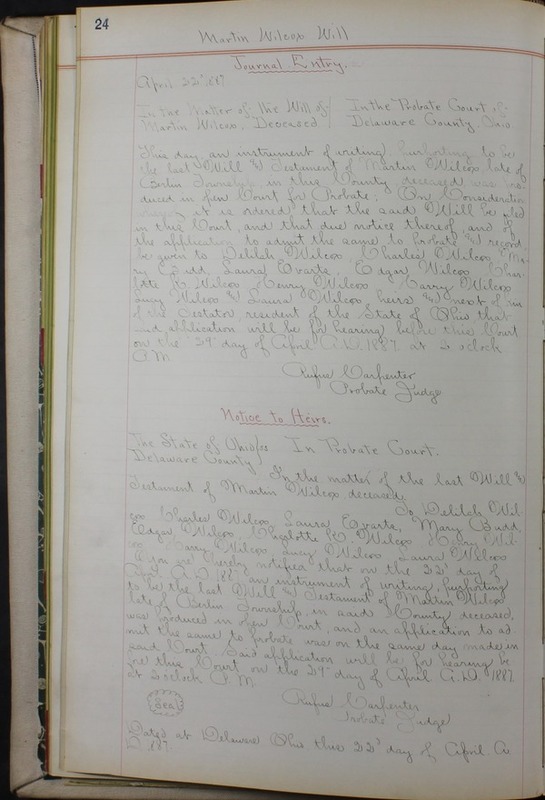 24
Martin Wilcox Will
Journal Entry.
April 22d 1887
In the Matter of the Will of
Martin Wilcox, Deceased
In the Probate Court of
Delaware County, Ohio.
This day an instrument of writing purporting to be
the last Will & Testament of Martin Wilcox late of
Berlin Township in this County deceased was pro
duced in open Court for Probate. On Consideration
it is ordered that the said Will be filed
in this Court, and that due notice thereof, and of
the application to admit the same to Probate & record
be given to Delilah Wilcox, Charles Wilcox, Ma-
ry Budd, Laura Evarts, Edgar Wilcox Char-
lotte Wilcox Henry Wilcox Harry Wilcox
Lucy Wilcox & Laura Wilcox heirs and next of kin
of said Testator, resident of the State of Ohio that
said application will be for hearing before this Court
on the 29" day of April A.D. 1887 at 2 oclock
P.M.
Rufus Carpenter
Probate Judge
Notice to Heirs.
The State of Ohio ss
Delaware County
In Probate Court.
In the matter of the last Will &
Testament of Martin Wilcox deceased.
To Delilah Wil-
cox Charles Wilcox Laura Evarts, Mary Budd,
Edgar Wilcox, Charlotte Wilcox Henry Wil-
cox Harry Wilcox Lucy Wilcox Laura Wilcox
you are hereby notified that on the 22d day of
April A.D. 1887 an instrument of writing, purporting
to be the last Will & Testament of Martin Wilcox
late of Berlin Township, in said County deceased,
was produced in open Court, and an application to ad
mit the same to probate was on the same day made in
said Court. Said application will be for hearing be
fore this Court on the 29" day of April A.D. 1887
at 2 oclock P.M.
Rufus Carpenter
Probate Judge
Seal
Dated at Delaware Ohio this 22d day of April A.
D. 1887.